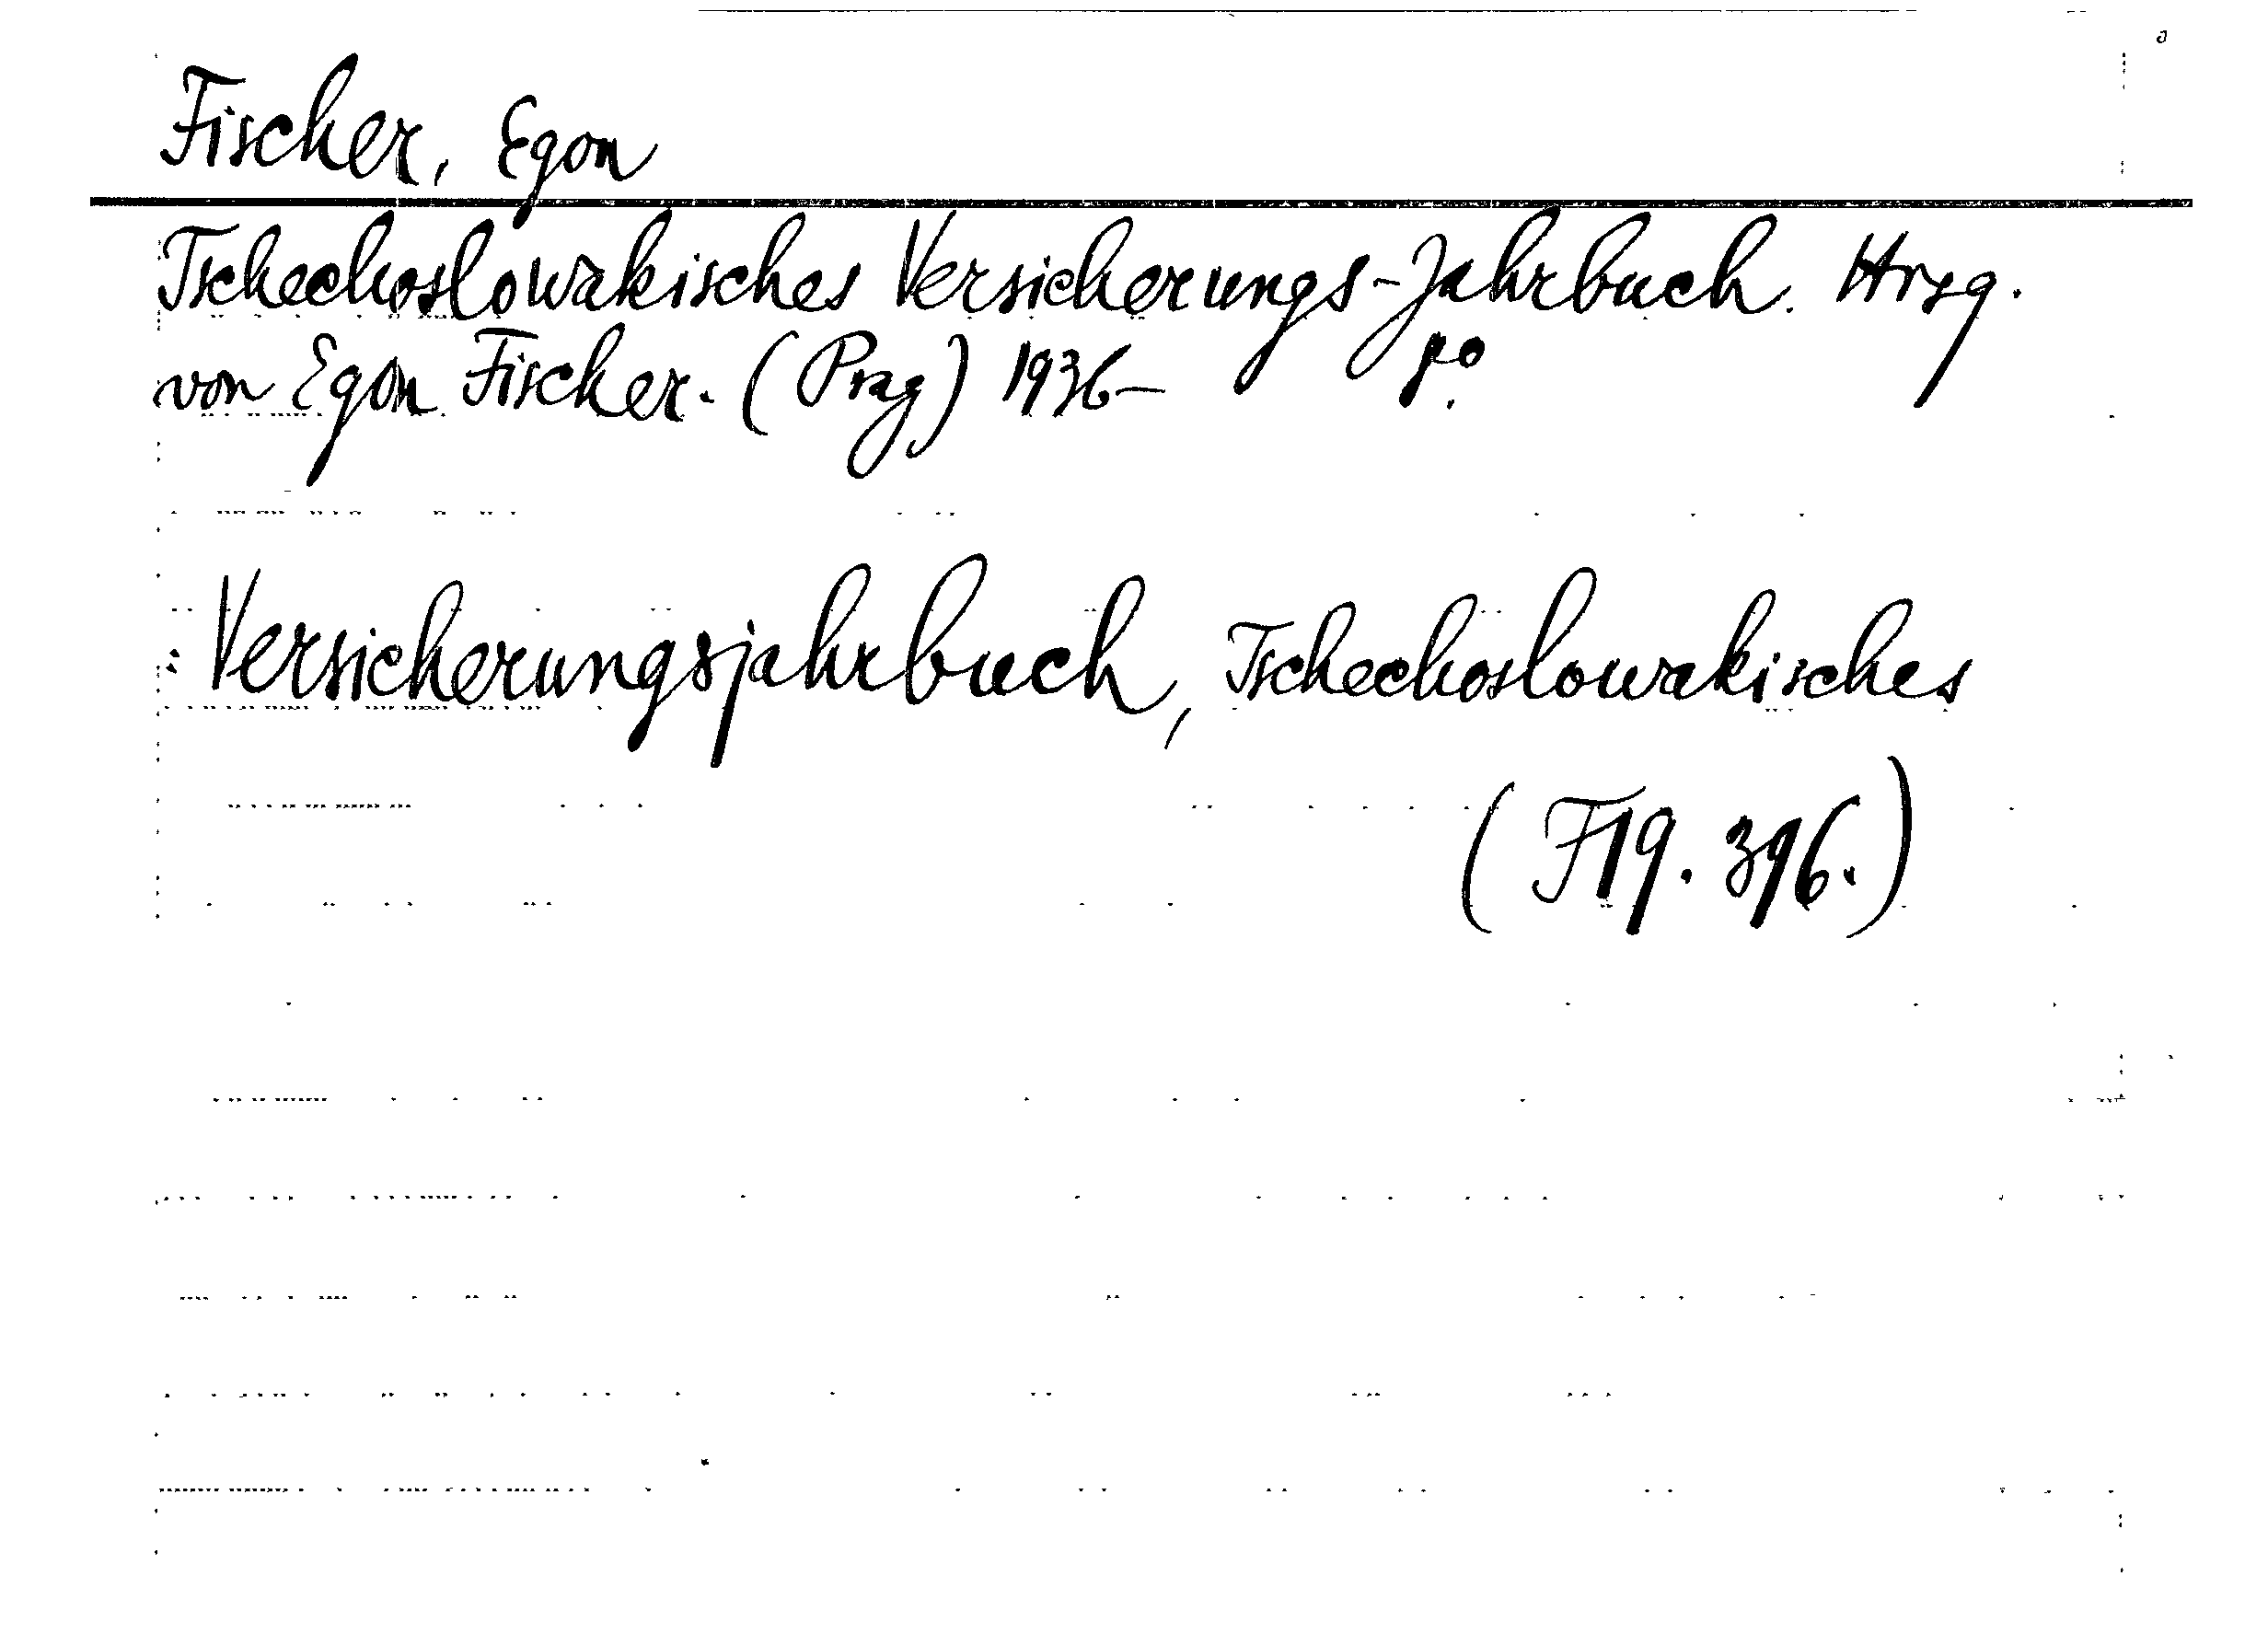 Fischer, Egon
Tschechoslowakisches Versicherungs-Jahrbuch. Hrsg.
von Egon Fischer. (Prag) 1936- 8°.
Versicherungsjahrbuch, Tschechoslowakisches
(F19.396.)